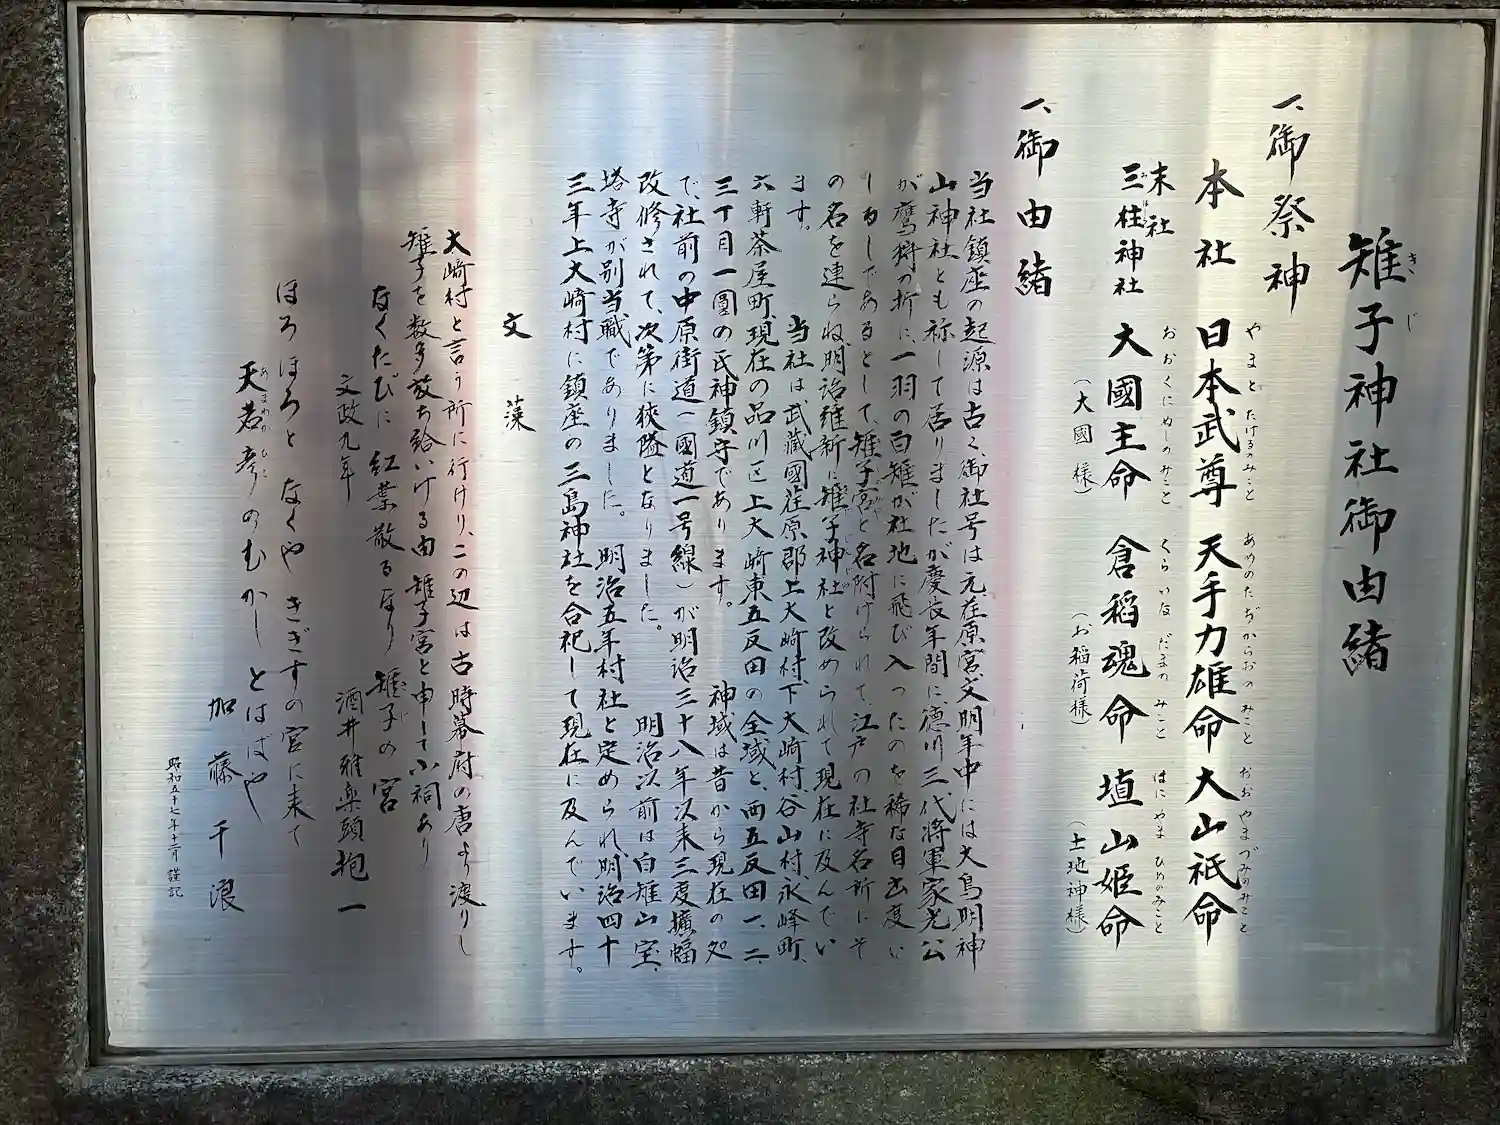 雉子神社御由緒
きじ
一、御祭神
本社 日本武尊 天手力雄命 大山祇命
やまと たけるのみこと あめのたぢからおのみこと おおやまづみのみこと
末社
三柱神社 大國主命 倉稲魂命 埴山姫命
みはしら おおくにぬしのみこと くらいなだまのみこと はにやまひめのみこと
（大國様） （お稲荷様） （土地神様）
一、御由緒
当社鎮座の起源は古く、御社号は元荏原宮、文明年中には大鳥明神
山神社とも称して居りましたが慶長年間に、徳川三代将軍家光公
が鷹狩の折に、一羽の白雉が社地に飛び入ったのを稀な目出度い
しるしであるとして、雉子宮と名附けられて、江戸の社寺名所にそ
の名を連らね、明治維新に雉子神社と改められて現在に及んでい
ます。 当社は武蔵國荏原郡上大崎村、下大崎村、谷山村、永峰町、
六軒茶屋町、現在の品川区上大崎東五反田の全域と、西五反田一、二、
三丁目一圓の氏神鎮守であります。 神域は昔から現在の処
で、社前の中原街道（國道一号線）が明治三十八年以来三度擴幅
改修されて、次第に狭隘となりました。 明治以前は白雉山宝
塔寺が別当職でありました。 明治五年村社と定められ、明治四十
三年上大崎村に鎮座の三島神社を合祀して現在に及んでいます。
文藻
大崎村と言う所に行けり、この辺は古時幕府の唐より渡りし
雉子を数多放ち給いける由 雉子宮と申して小祠あり
なくたびに 紅葉散るなり 雉子の宮
文政九年 酒井雅楽頭抱一
ほろほろと なくや きぎすの宮に来て
天若彦の むかし とはばや
あまわかひこ
加藤千浪
昭和五十七年十二月 謹記